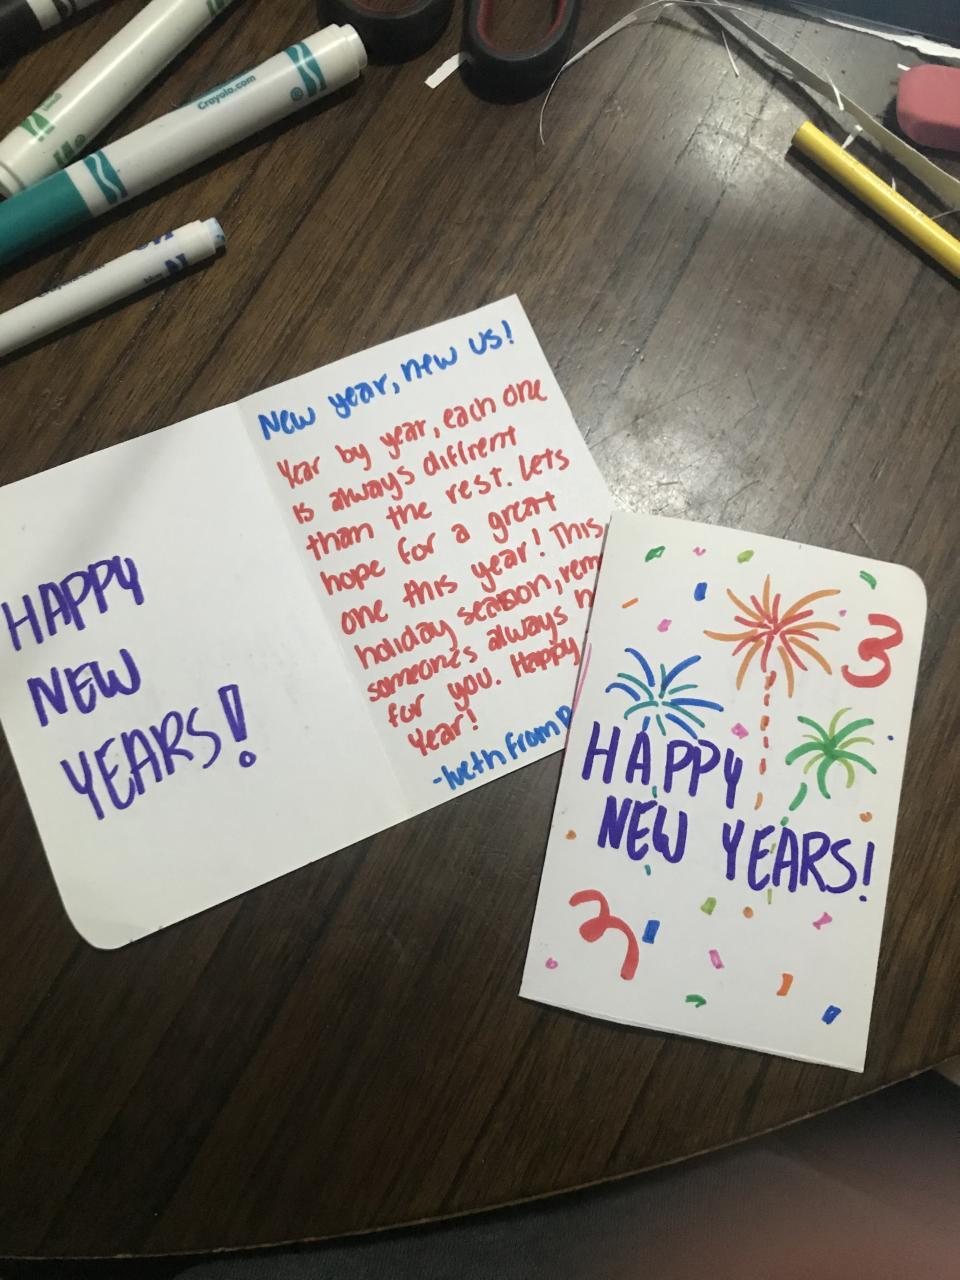 Crayola.com
HAPPY
NEW
YEARS!
New year, new us!
Year by year, each one
is always difirent
than the rest. Lets
hope for a great
one this year! This
holiday season, rem
someones always n
for you. Happy
Year!
from
HAPPY
NEW YEARS!